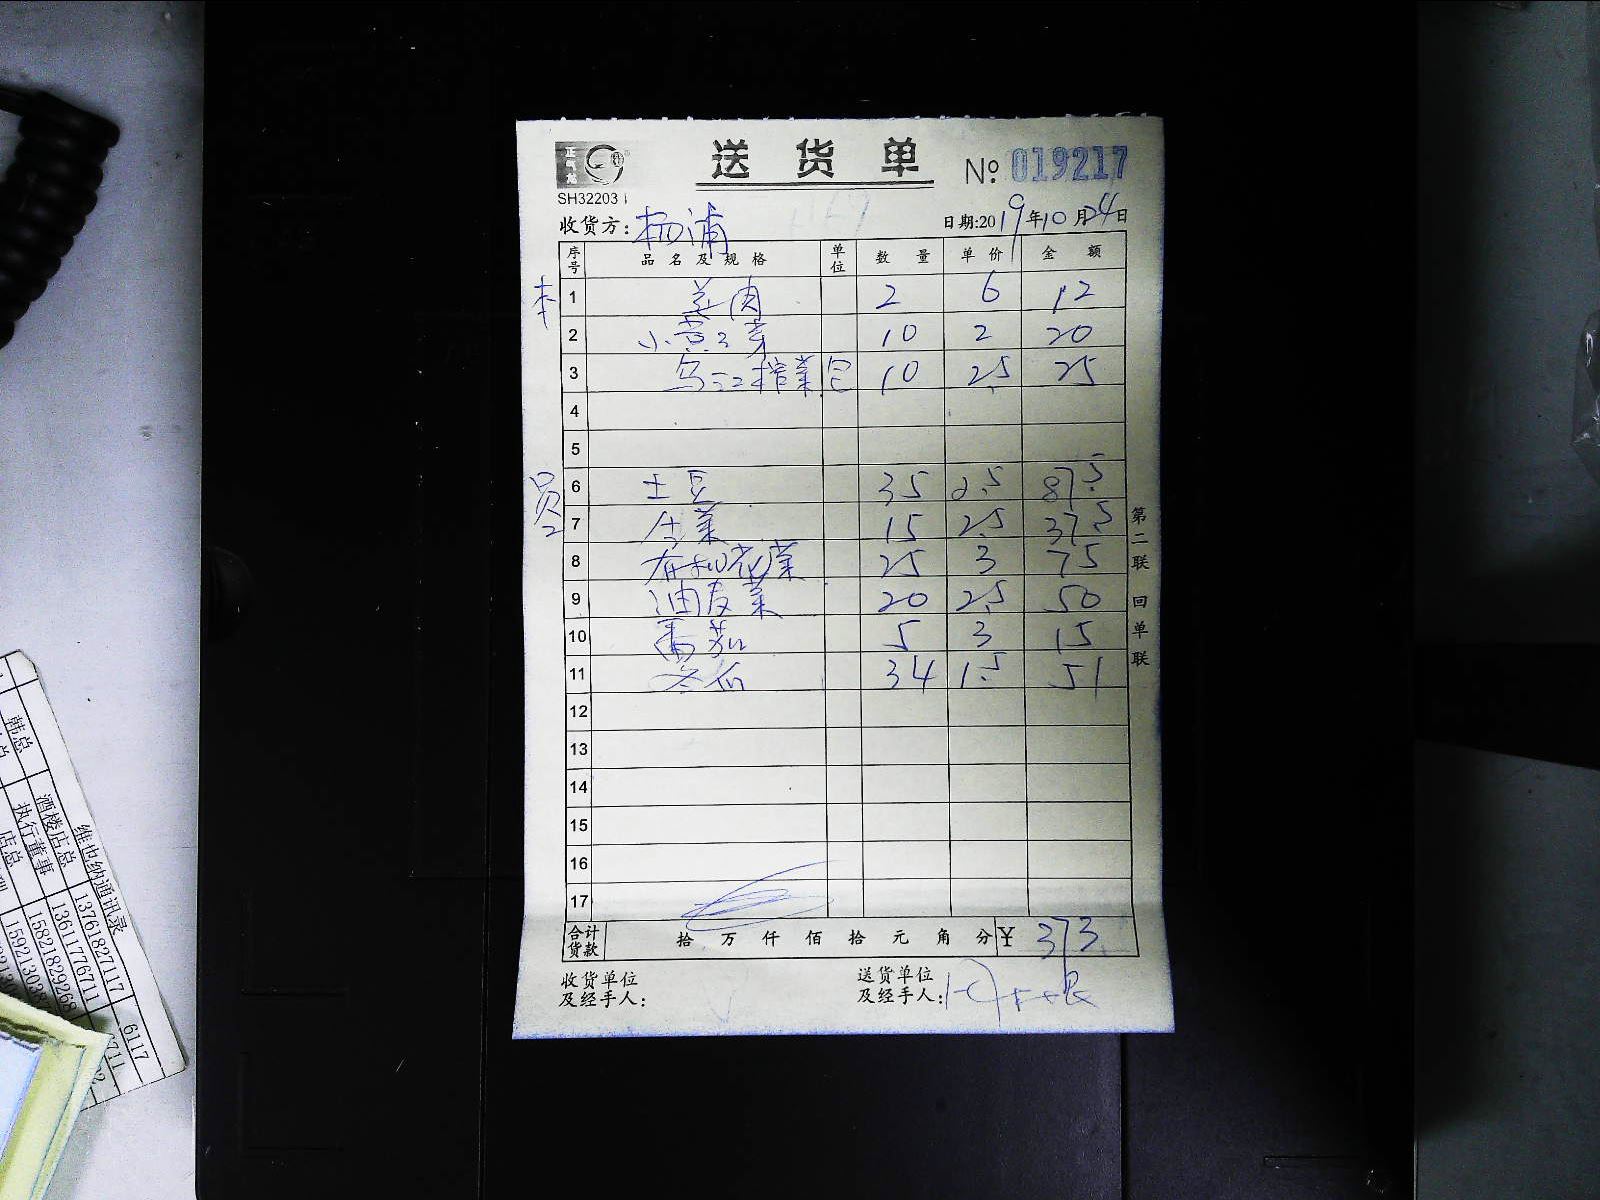 正气龙
送 货 单
№ 019217
SH32203
收货方: 杨浦
日期:2019年10月24日
序号 品名及规格 单位 数量 单价 金额
本
1 姜肉 2 6 12
2 小黄豆芽 10 2 20
3 乌江榨菜 包 10 2.5 25
4
5
员工
6 土豆 35 2.5 87.5
7 生菜 15 2.5 37.5
8 有机花菜 25 3 75
9 油麦菜 20 2.5 50
10 番茄 5 3 15
11 冬瓜 34 1.5 51
12
13
14
15
16
17
合计货款 拾 万 仟 佰 拾 元 角 分 ¥ 373
收货单位
及经手人:
送货单位
及经手人:
第二联 回单联
维也纳通讯录
酒楼店总 13761827117 6117
执行董事 13611776711 6711
店总 15821829268
韩总